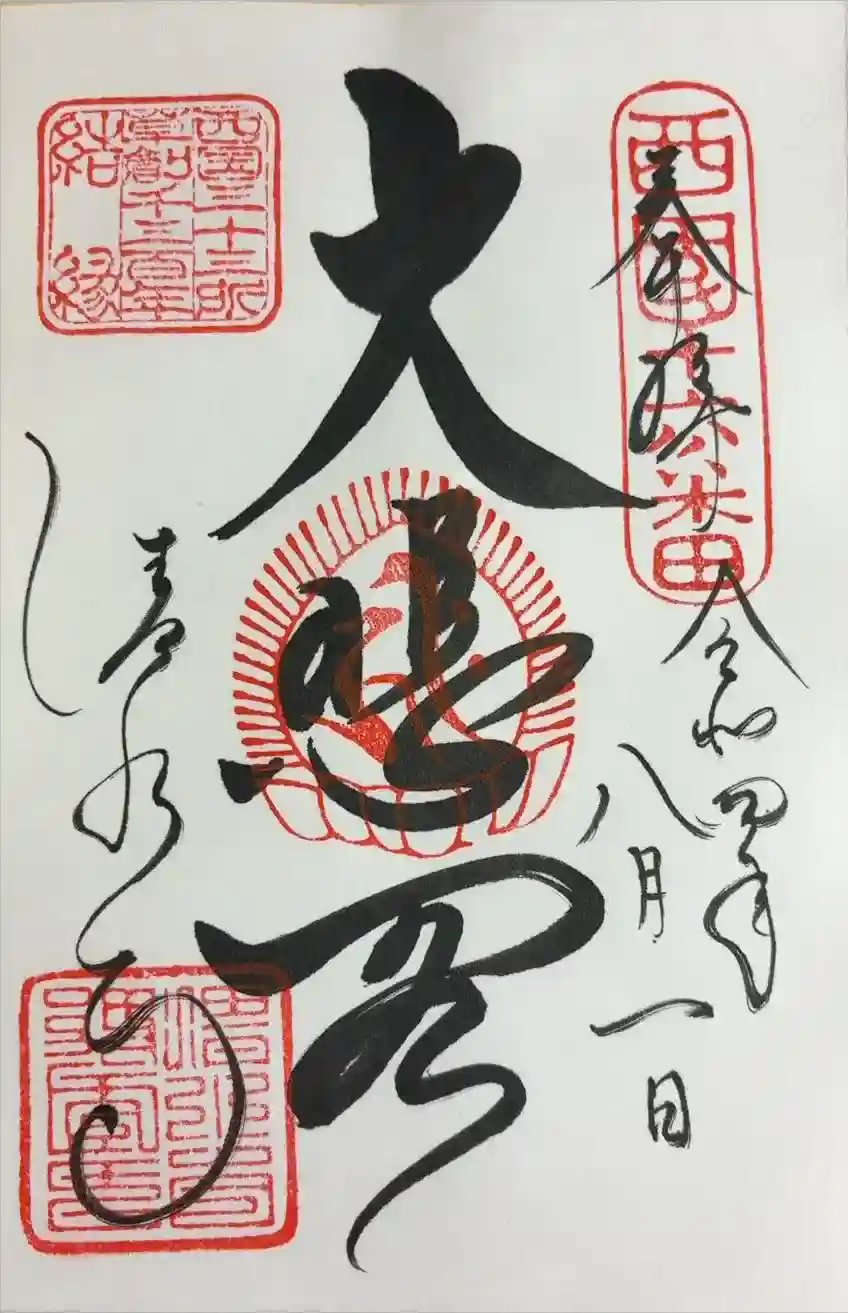 西国十六番
奉拝
令和四年
八月一日
大悲閣
西国三十三所
草創千三百年
結縁
清水寺